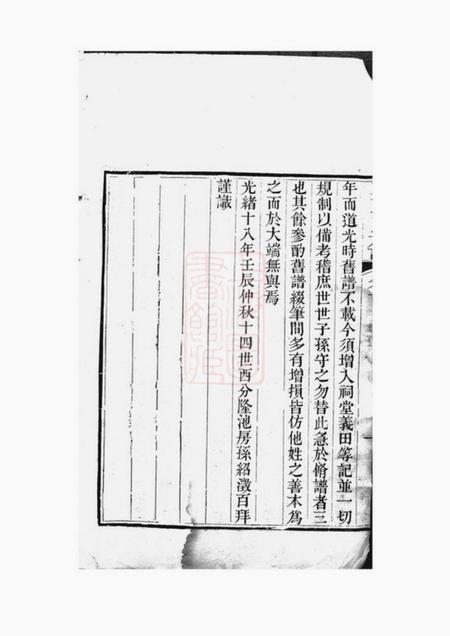 年而道光時舊譜不載今須增入祠堂義田等記並一切
規制以備考稽庶世世子孫守之勿替此急於脩譜者三
也其餘參酌舊譜綴筆間多有增損皆仿他姓之善本爲
之而於大端無與焉
光緒十八年壬辰仲秋十四世西分隆池房孫紹澂百拜
謹識